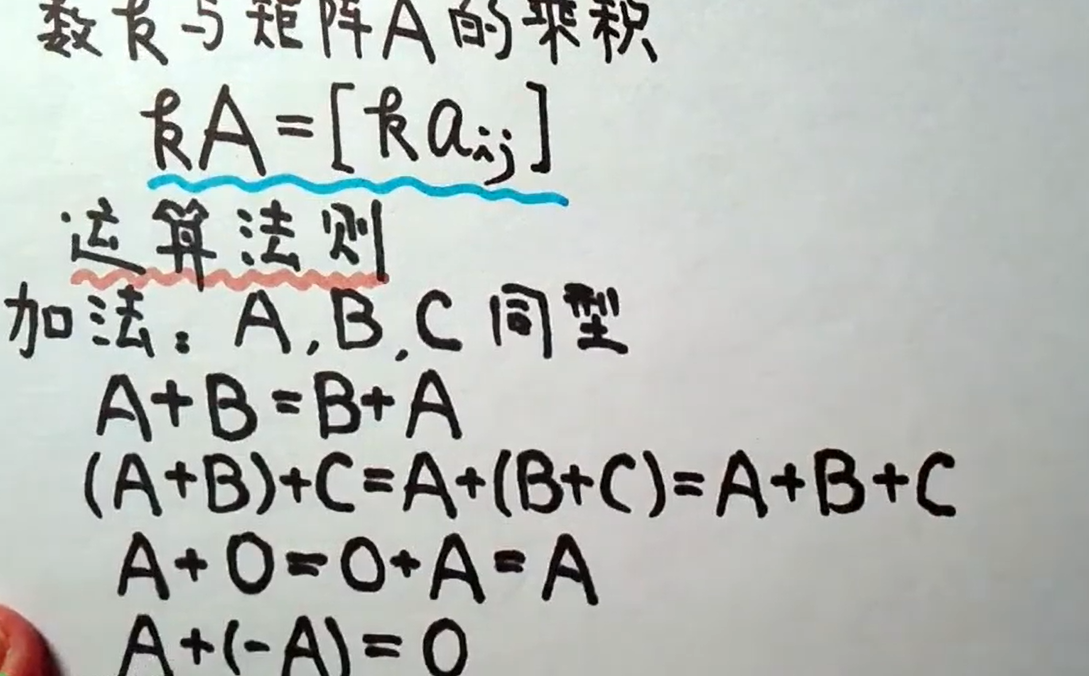 数k与矩阵A的乘积
kA=[kaij]
运算法则
加法：A,B,C同型
A+B=B+A
(A+B)+C=A+(B+C)=A+B+C
A+O=O+A=A
A+(-A)=O